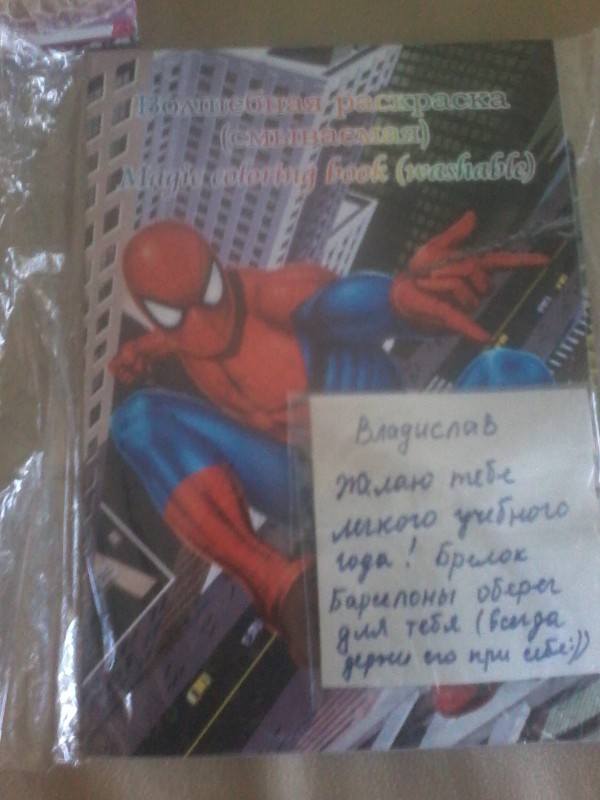 Волшебная раскраска
(смываемая)
Magic coloring book (washable)
Владислав
Желаю тебе
легкого учебного
года! Брелок
Барселоны оберег
для тебя (всегда
держи его при себе:))